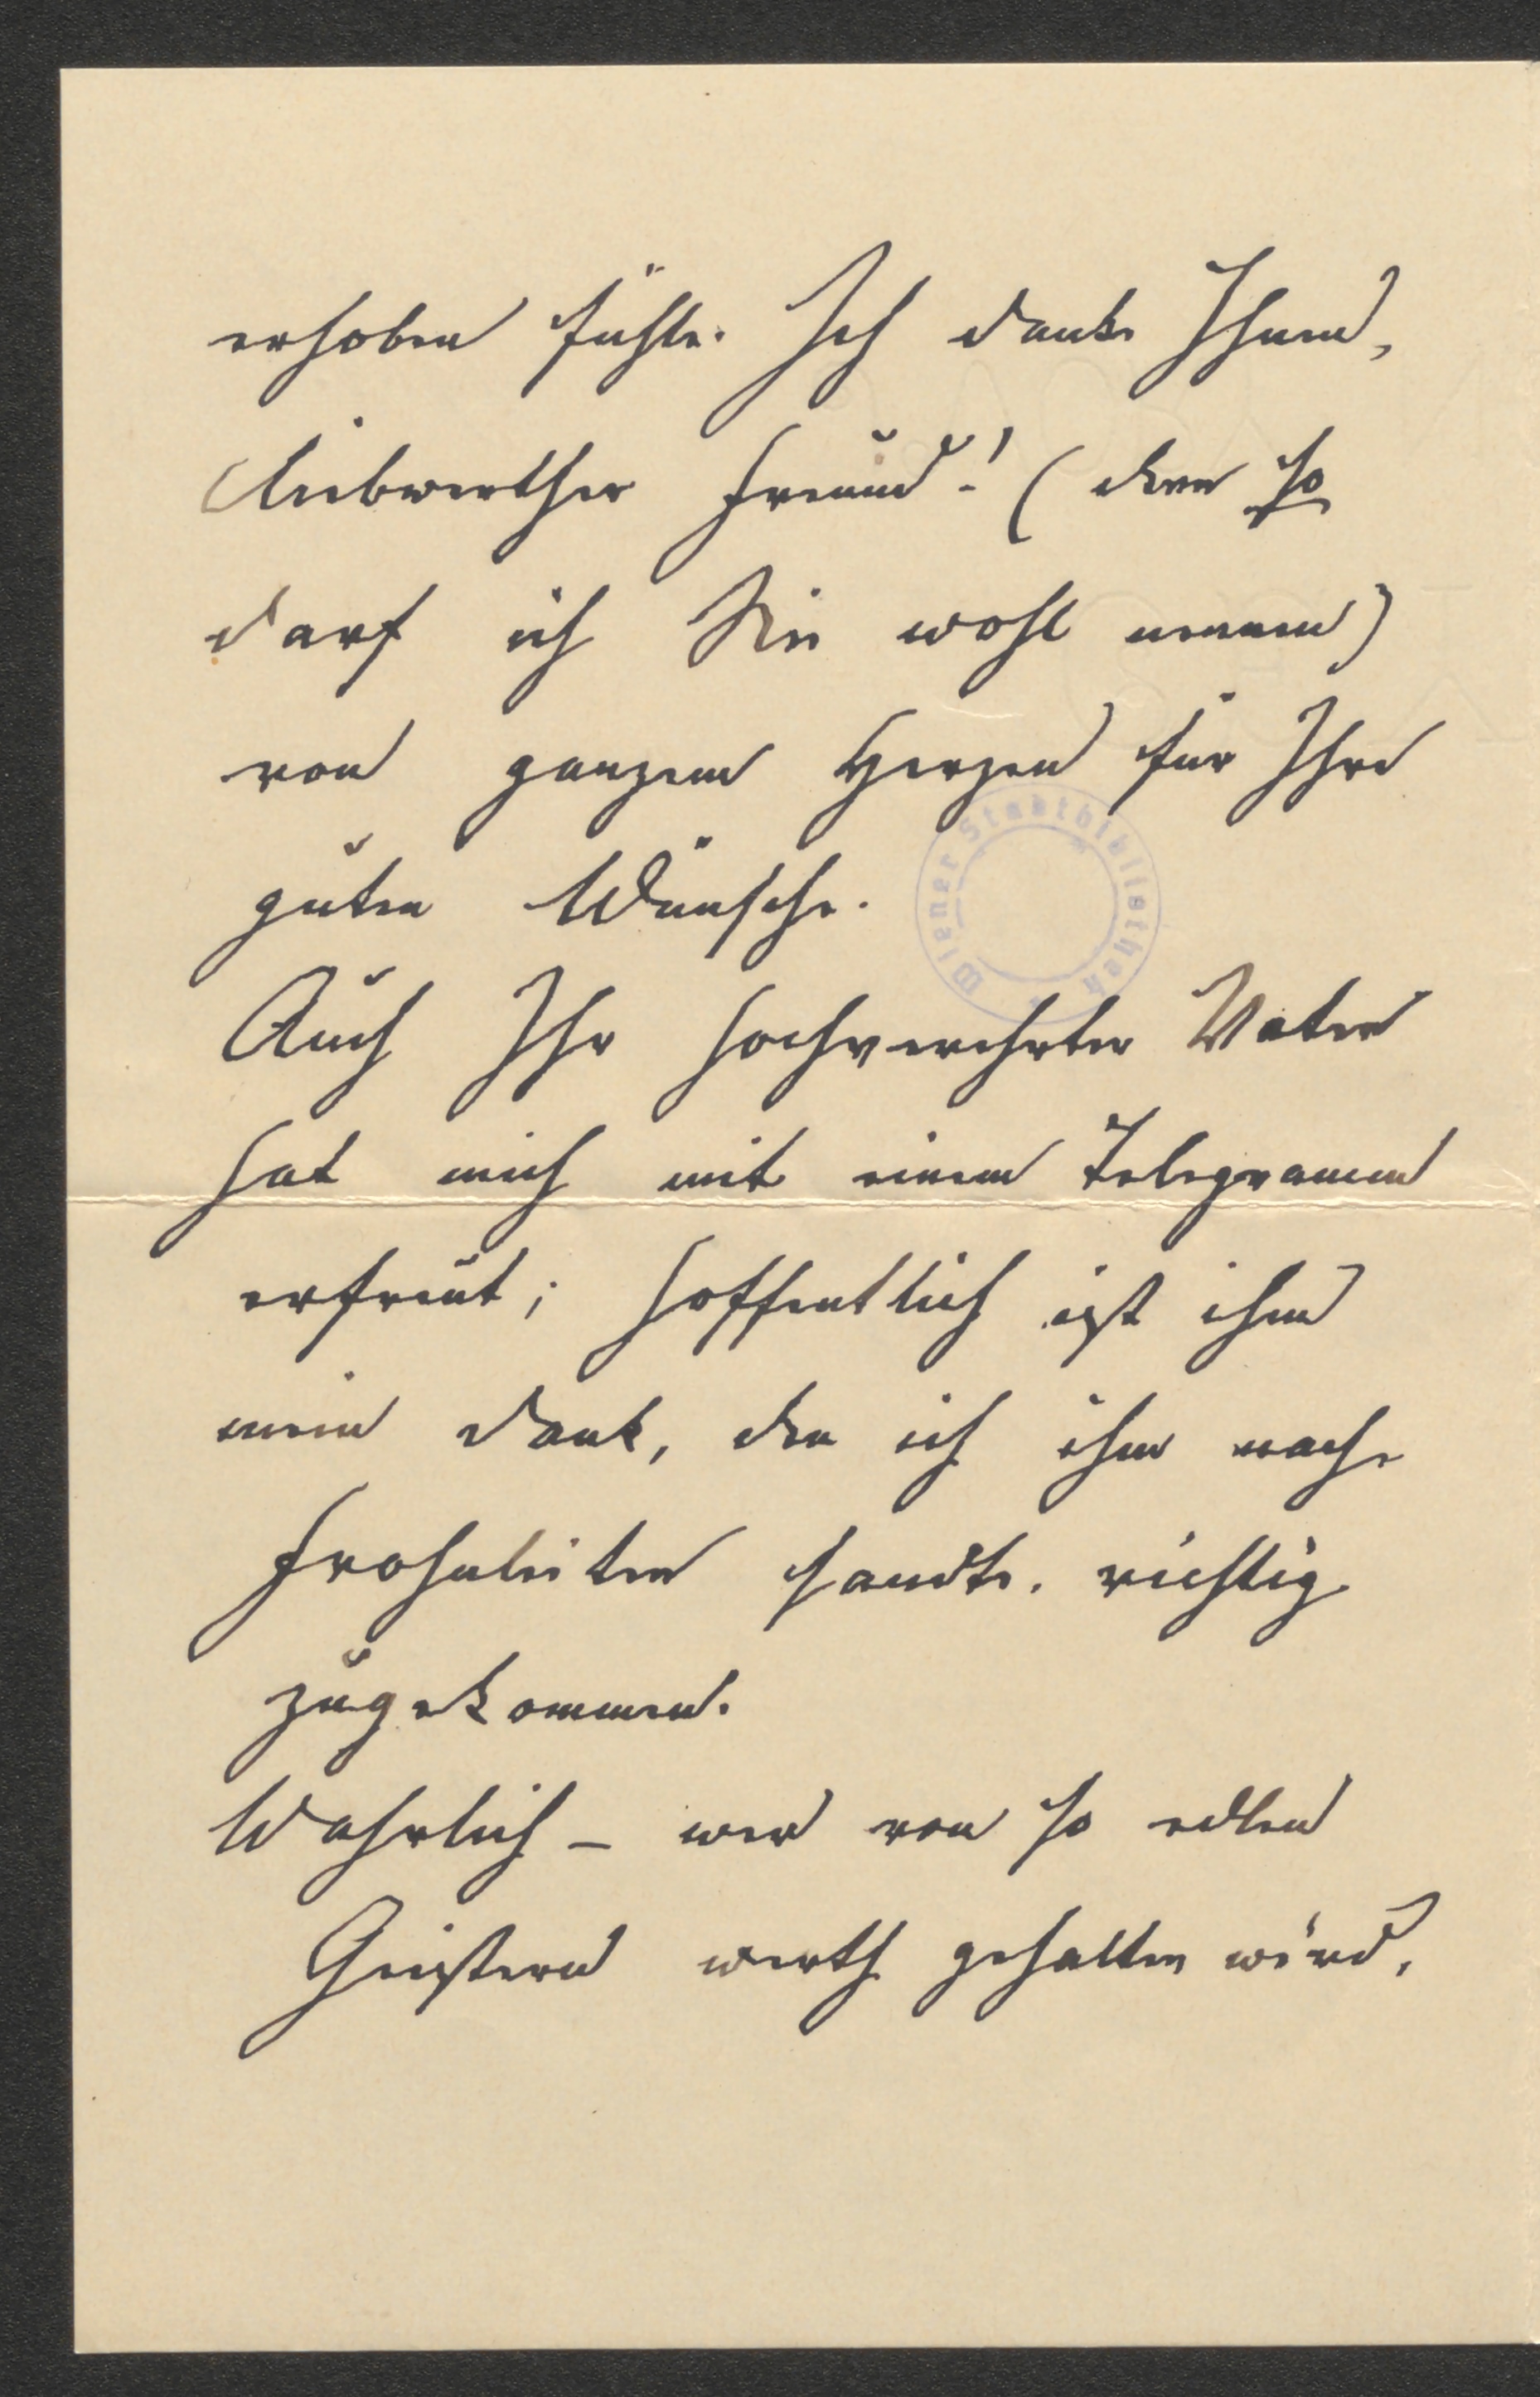 erhoben fühle. Ich danke Ihnen,
liebwerther Freund! (denn so
darf ich Sie wohl nennen)
von ganzem Herzen für Ihre
guten Wünsche.
Wiener Stadtbibliothek
Auch Ihr hochverehrter Vater
hat mich mit einem Telegramm
erfreut; hoffentlich ist ihm
mein Dank, den ich ihm nach
Frohnleiten sandte, richtig
zugekommen.
Wahrlich – wer von so edlen
Geistern werth gehalten wird,